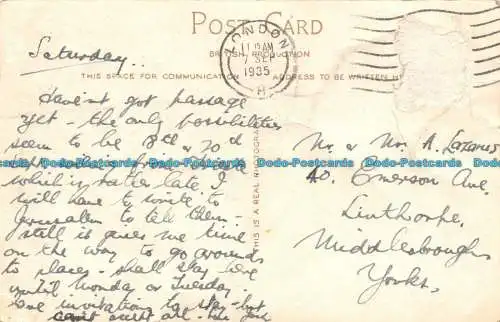 POST CARD
BRITISH PRODUCTION
THIS SPACE FOR COMMUNICATION
ADDRESS TO BE WRITTEN
LONDON
11 AM
7 SEP
1935
H
Saturday..
Haven't got passage
yet – the only possibilities
seem to be 8th or 20th
which is rather late. I
will have to write to
Jerusalem to tell them –
still it gives me time
on the way to go around
to places – shall stay here
until Monday or Tuesday.
invitations to stay – but
can't accept all –
THIS IS A REAL PHOTOGRAPH
Mr. & Mrs. A. Lazarus
40. Emerson Ave.
Linthorpe,
Middlesbrough
Yorks.
Dodo-Postcards